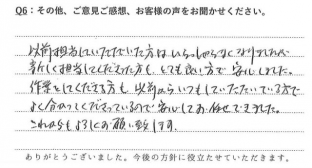 Q6：その他、ご意見ご感想、お客様の声をお聞かせください。
以前担当していただいた方はいらっしゃらなくなりましたが
新しく担当してくださった方も、とても良い方で安心しました。
作業をしてくださる方も以前からいつもしていただいている方で
よく分かってくださっているので安心してお任せできました。
これからもよろしくお願い致します。
ありがとうございました。今後の方針に役立たせていただきます。